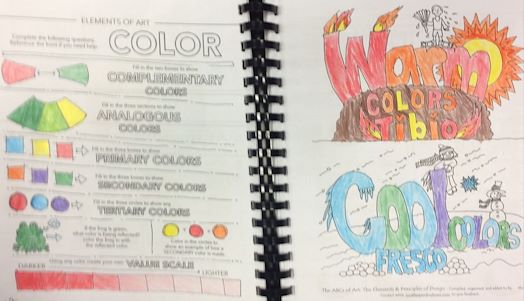 ELEMENTS OF ART
Complete the following questions
Reference the book if you need help
COLOR
Fill in the two boxes to show
COMPLEMENTARY
COLORS
Fill in the three sections to show
ANALOGOUS
COLORS
Fill in the three boxes to show
PRIMARY COLORS
Fill in the three boxes to show
SECONDARY COLORS
Fill in the three circles to show any
TERTIARY COLORS
If the frog is green,
what color is being reflected?
color the frog in with
the reflected color.
Color in the circles to
show an example of how a
SECONDARY color is made.
Using any color create your own VALUE SCALE
DARKER
LIGHTER
Warm
COLORS
Tibio
Cool COLORS
FRESCO
The ABCs of Art: The Elements & Principles of Design